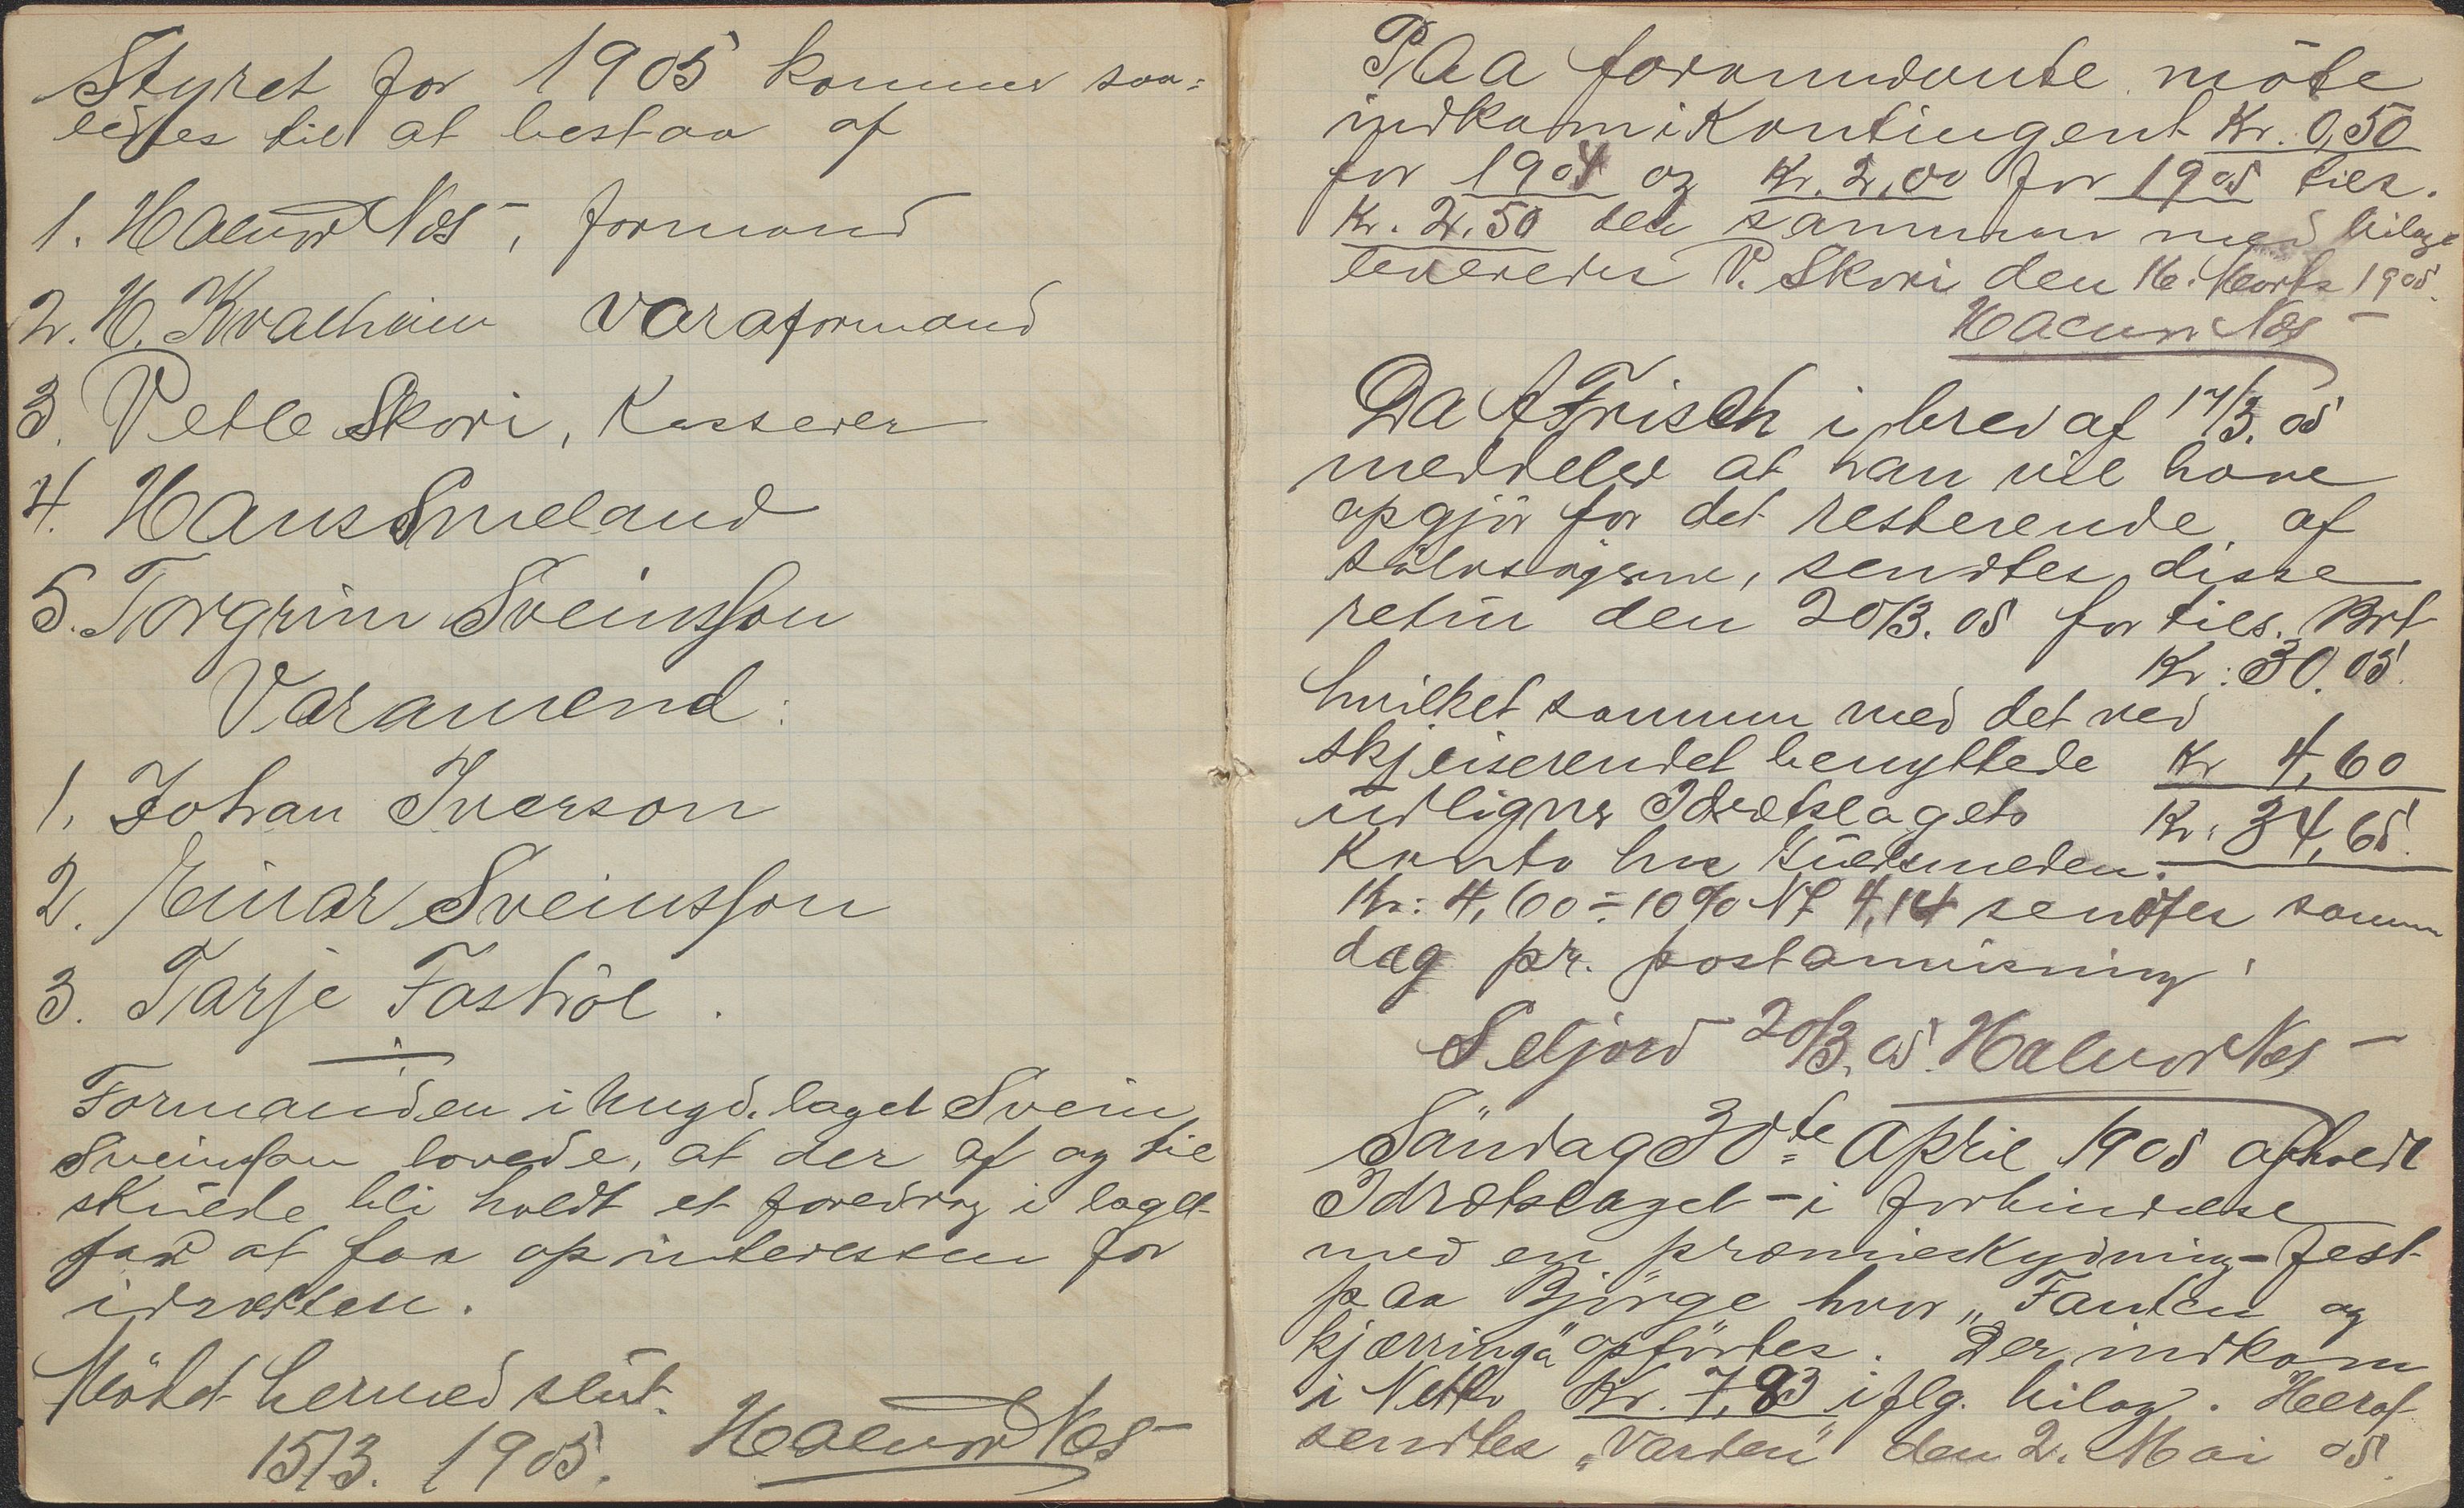 Styret for 1905 kommer saa=
ledes til at bestaa af
1. Halvor Nes, formand
2. H. Kvalheim varaformand
3. Petle Skori, Kasserer
4. Hans Smeland
5. Torgrim Sveinsson
Varamend:
1. Johan Iverson
2. Einar Sveinsson
3. Tarje Foshöl.
Formanden i Ungd. laget Svein
Sveinsson lovede, at der af og til
skulde bli holdt et foredrag i laget
for at faa op interessen for
idrætten.
Mötet hermed slut.
15/3. 1905. Halvor Nes
Paa foranmdante möte
indkom i Kontingent Kr. 0,50
for 1904 og Kr. 2,00 for 1905 tils.
Kr. 2,50 der sammen med bilag
leveredes P. Skori den 16. Marts 1905.
Halvor Nes
Da A Frisch i brev af 17/3. 05
meddeler at han vil have
opgjör for det resterende af
sölvsagerne, sendtes disse
retur den 20/3. 05 for tils. Brt
Kr: 30.05.
hvilket sammen med det ved
skjeiserendet benyttede Kr 4,60
udligner Idrætslagets Kr: 34,65.
Konto hos Guldsmeden.
Kr: 4,60 ÷ 10% Nt 4,14 sendtes samme
dag pr. postanvisning.
Seljord 20/3. 05. Halvor Nes
Söndag 30te April 1905 afholdt
Idrætslaget - i forbindelse
med en præmieskydning - fest
paa Bjórge hvor "Fanten og
kjærringa" opförtes. Der indkom
i Netto Kr. 7,93 iflg. bilag. Heraf
sendtes "Varden" den 2. Mai 05.